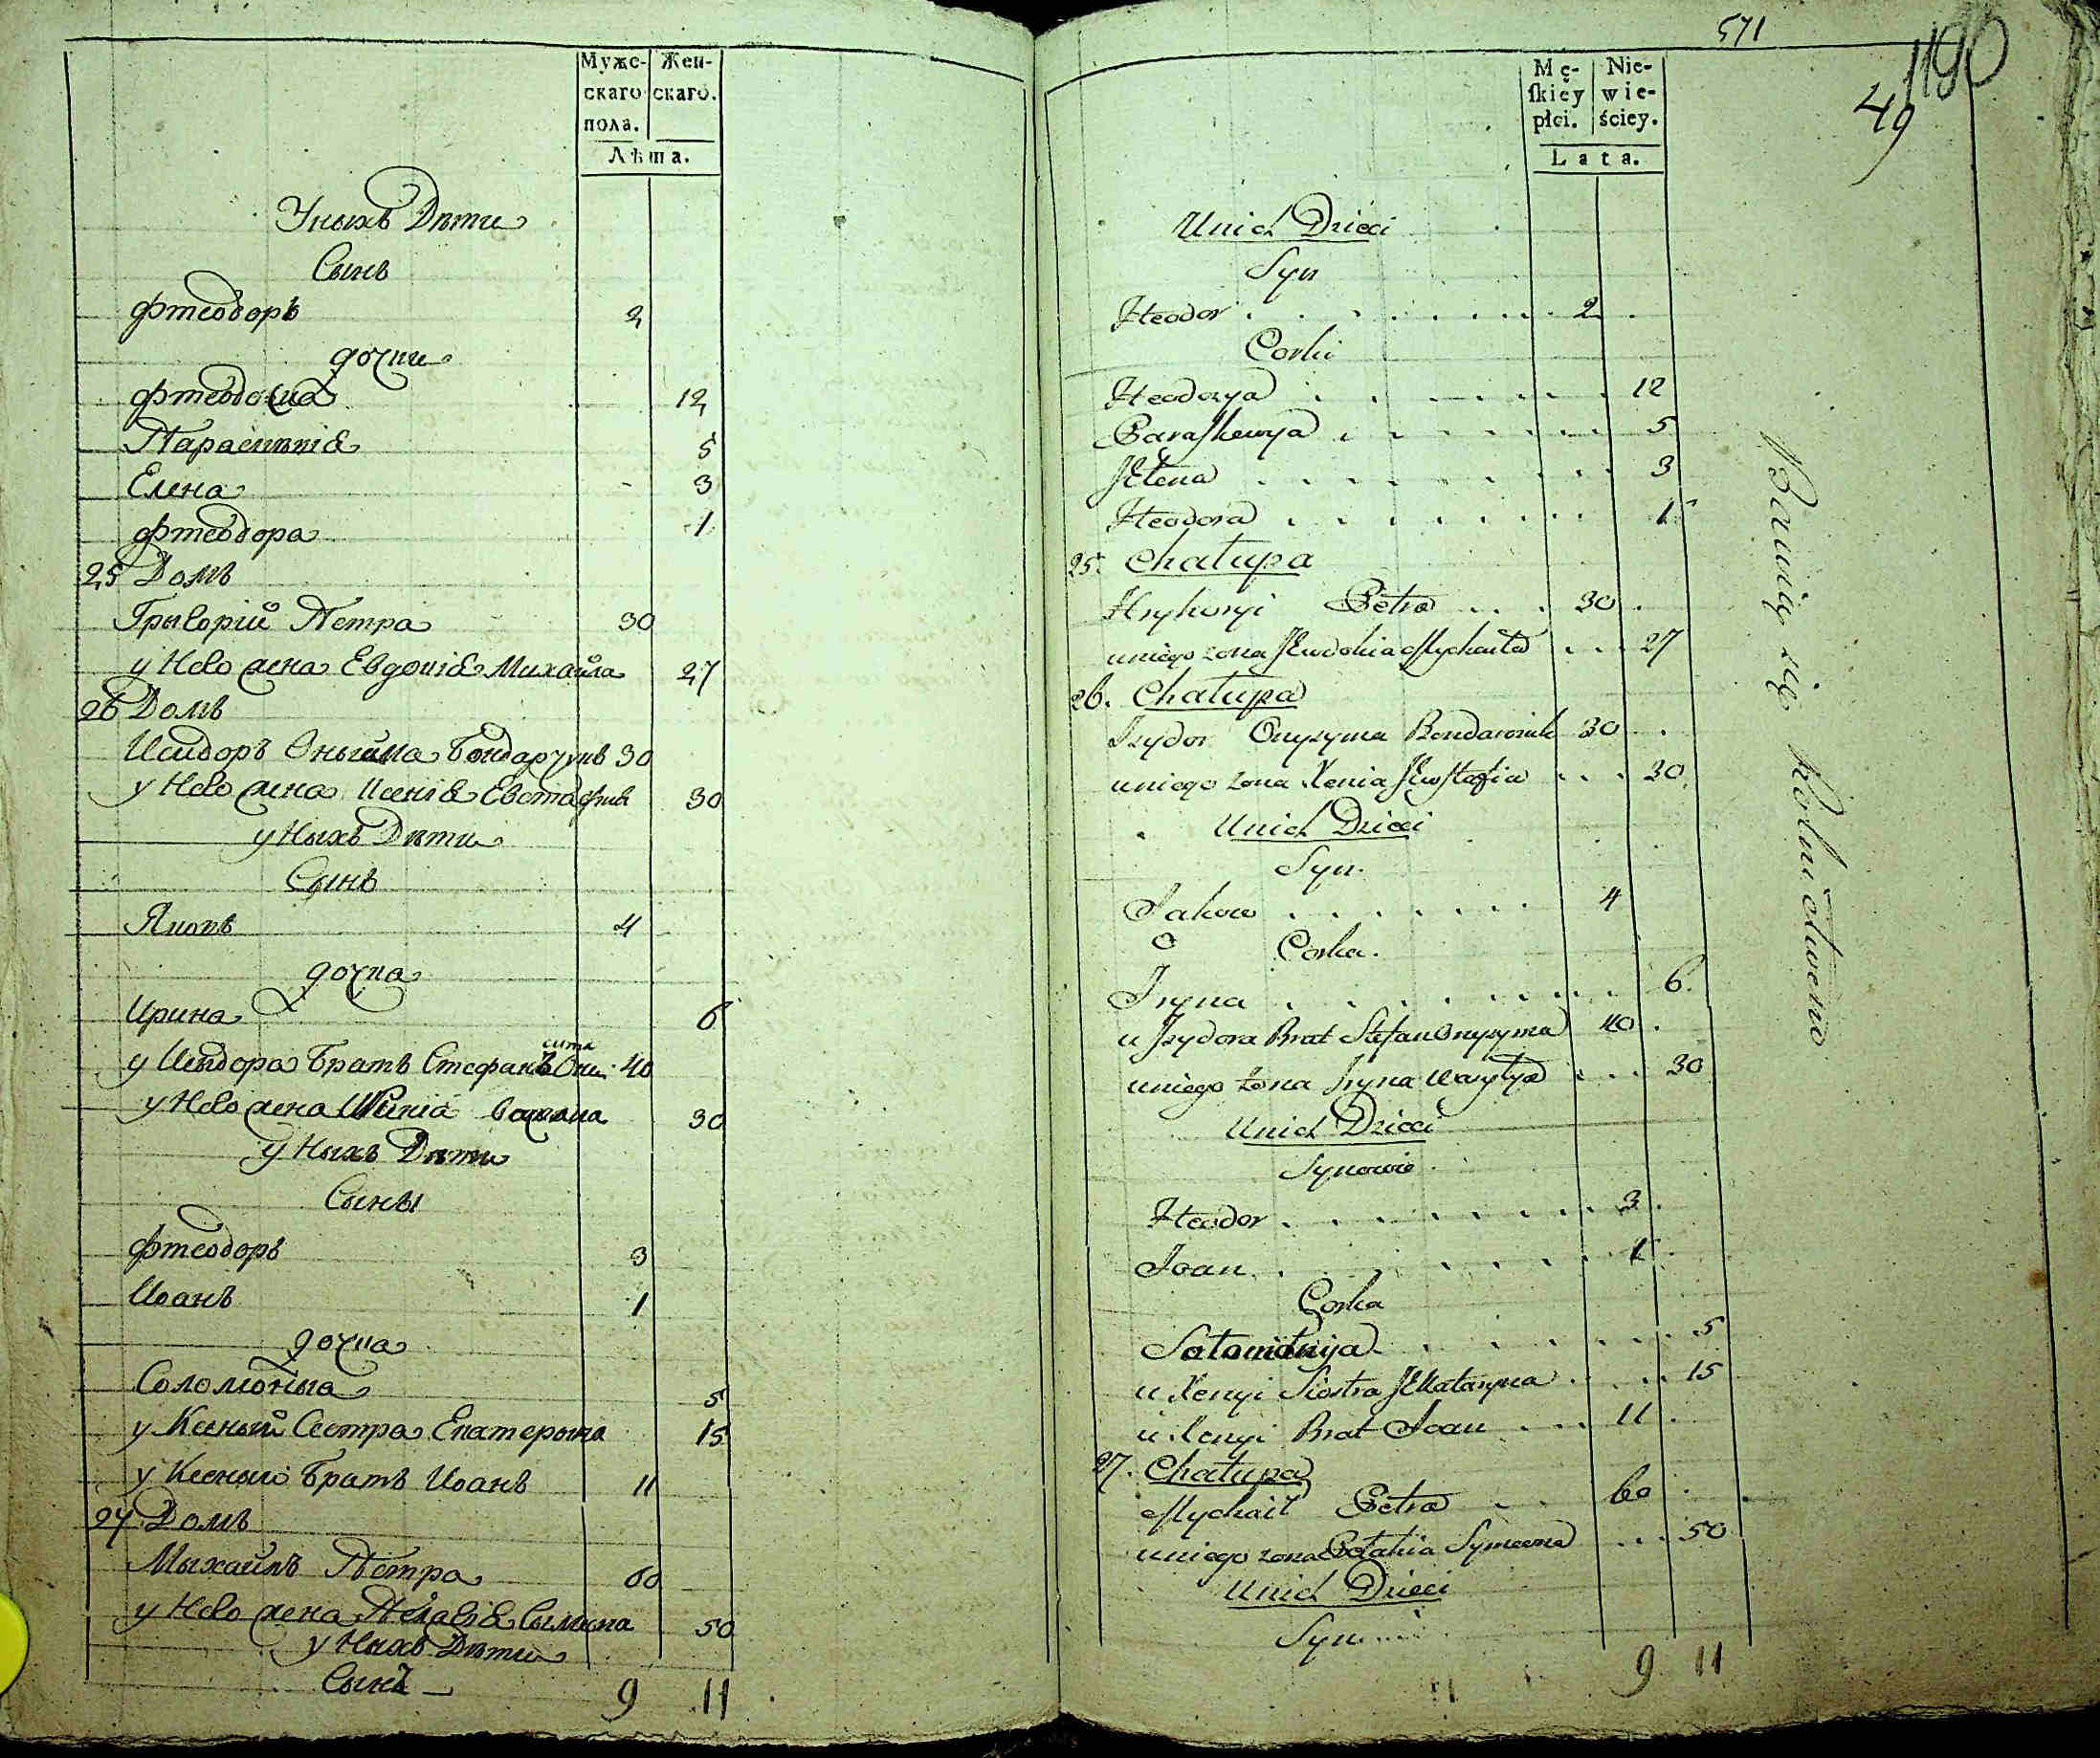 Мужс- Жен-
скаго скаго.
пола.
Лѣта.
Уныхъ Дѣти
Сынъ
Фтеодоръ 2
дочки
Фтеодосия 12
Параскевіѧ 5
Елена 3
Фтеодора 1
25 Домъ
Грыгорій Петра 30
у Него жена Евдокіѧ Михайла 27
26 Домъ
Исидоръ Онысима Бондарчукъ 30
у Него жена Ксеніѧ Евстафия 30
у Ныхъ Дѣти
Сынъ
Яковъ 4
дочка
Ирина 6
сима
у Исидора Братъ Стефанъ Они 40
у Него жена 30
у Ныхъ Дѣти
Сыны
Фтеодоръ 3
Иоанъ 1
дочка
Соломоныа 5
у Ксеныи Сестра Екатерына 15
у Ксеныи Братъ Иоанъ 11
27 Домъ
Мыхайлъ Петра 60
у Него жена Пелагіѧ Сымиона 50
у Ныхъ Дѣти
Сынъ
9 11
571
1190
49
Mę- Nie-
ſkiey wie-
płci. ściey.
Lata.
Unich Dzieci
Syn
Fteodor 2
Corki
Fteodozya 12
Paraſkewija 5
JEłena 3
Fteodora 1
25. Chałupa
Hryhoryi Petra 30
uniego zona JEwdokia Mychaiła 27
26. Chałupa
Izydor Onyzyma Bondarczuk 30
uniego zona Xenia JEwſtafia 30
Unich Dzieci
Syn.
Jakow 4
Corka.
Iryna 6
u Izydora Brat Stefan Onyzyma 40
uniego zona Iryna Wasylya 30
Unich Dzieci
Synowie
Fteodor 3
Joan 1
Corka
Sołomonija 5
u Xenyi Siostra JEkataryna 15
u Xenyi Brat Joan 11
27. Chałupa
Mychaił Petra 60
uniego zona Pełahia Symeona 50
Unich Dzieci
Syn
9 11
Bawią się Rolnictwem